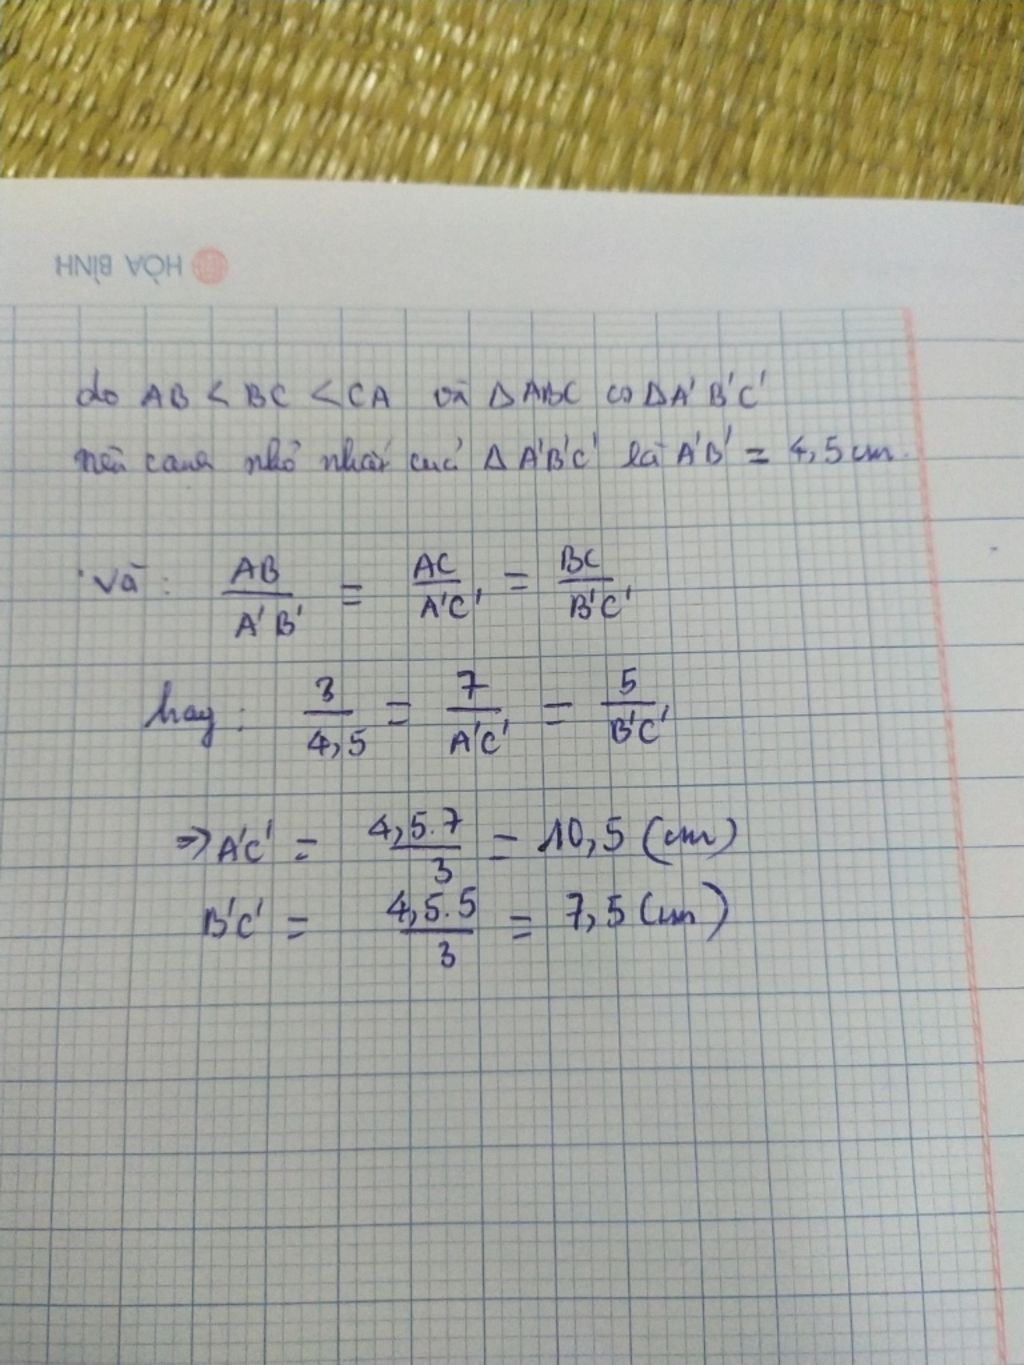 HÒA BÌNH
do AB < BC < CA và Δ ABC ∽ Δ A'B'C'
nên cạnh nhỏ nhất của Δ A'B'C' là A'B' = 4,5 cm.
Và : AB/A'B' = AC/A'C' = BC/B'C'
hay : 3/4,5 = 7/A'C' = 5/B'C'
⇒ A'C' = 4,5.7/3 = 10,5 (cm)
B'C' = 4,5.5/3 = 7,5 (cm)